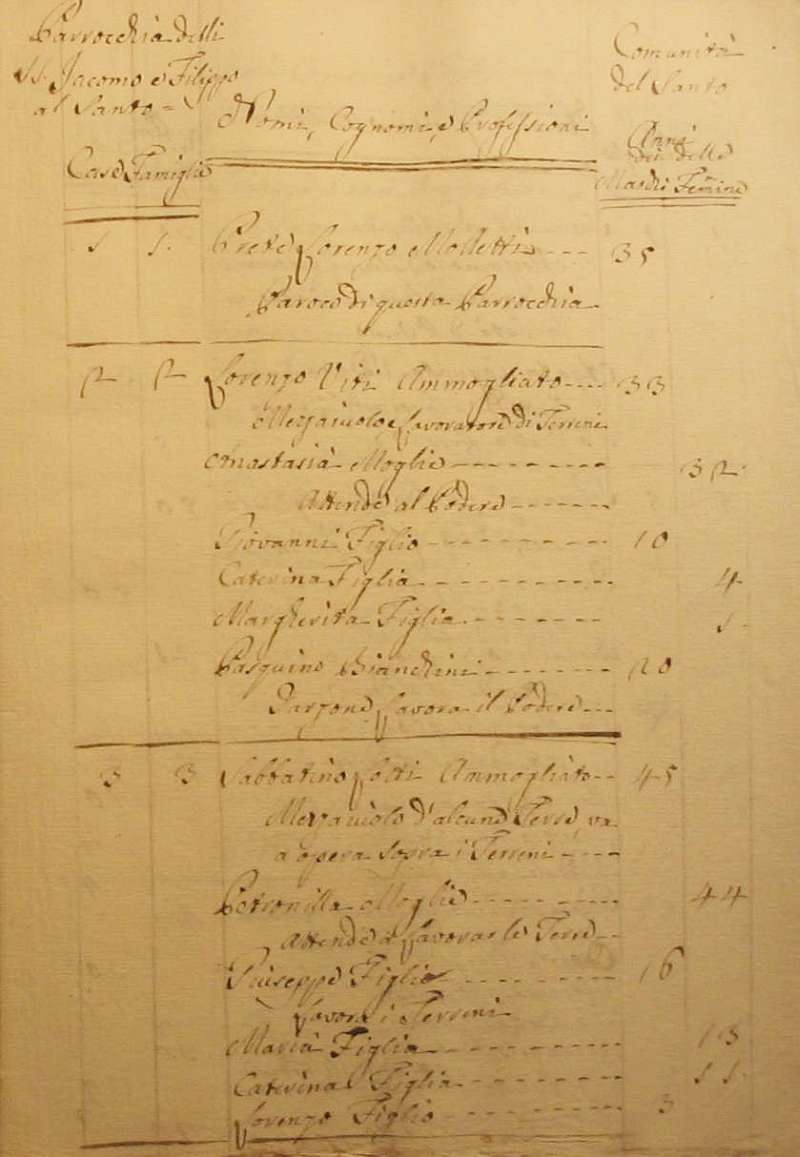 Parrocchia delli
SS. Jacomo e Filippo
al Santo =
Comunità
del Santo
Nomi, Cognomi, e Professioni
Anni
dei delle
Case Famiglie
Maschi Femine
1 1. Prete Lorenzo Molletti 35
Paroco di questa Parrocchia
2 2 Lorenzo Viti Ammogliato 33
Mezaiuolo e Lavoratore di Terreni
Anastasia Moglie 32
Attende al Podere
Giovanni Figlio 10
Caterina Figlia 4
Margherita Figlia 1
Pasquino Bianchini 20
Garzone Lavora il Podere
3 3 Sabbatino Ammogliato 45
Mezaiuolo d'alcune Terre, va
a opera sopra i Terreni
Petronilla Moglie 44
Attende a Lavorar le Terre
Giuseppe Figlio 16
Lavora i Terreni
Maria Figlia 13
Caterina Figlia 11
Lorenzo Figlio 3